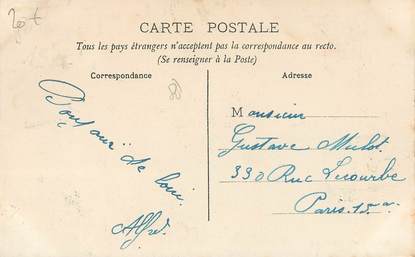 20 t
CARTE POSTALE
Tous les pays étrangers n'acceptent pas la correspondance au recto.
(Se renseigner à la Poste)
Correspondance
Adresse
de loin
Alfred.
Monsieur
Gustave Mulot
330 Rue Lecourbe
Paris. 15